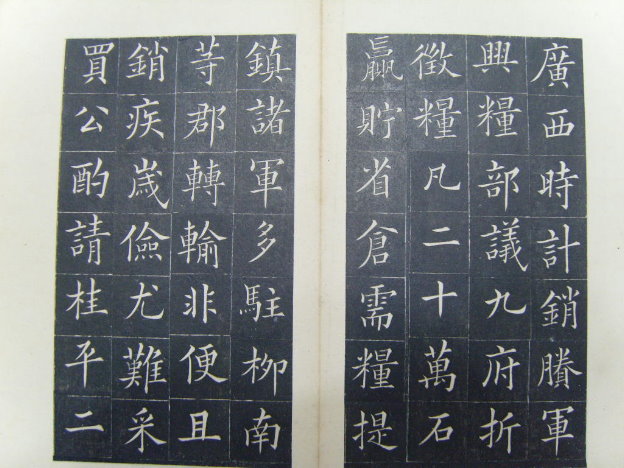 廣西時計銷賸軍
興糧部議九府折
徵糧凡二十萬石
贏貯省倉需糧提
鎮諸軍多駐柳南
等郡轉輸非便且
銷疾嵗儉尤難采
買公酌請桂平二